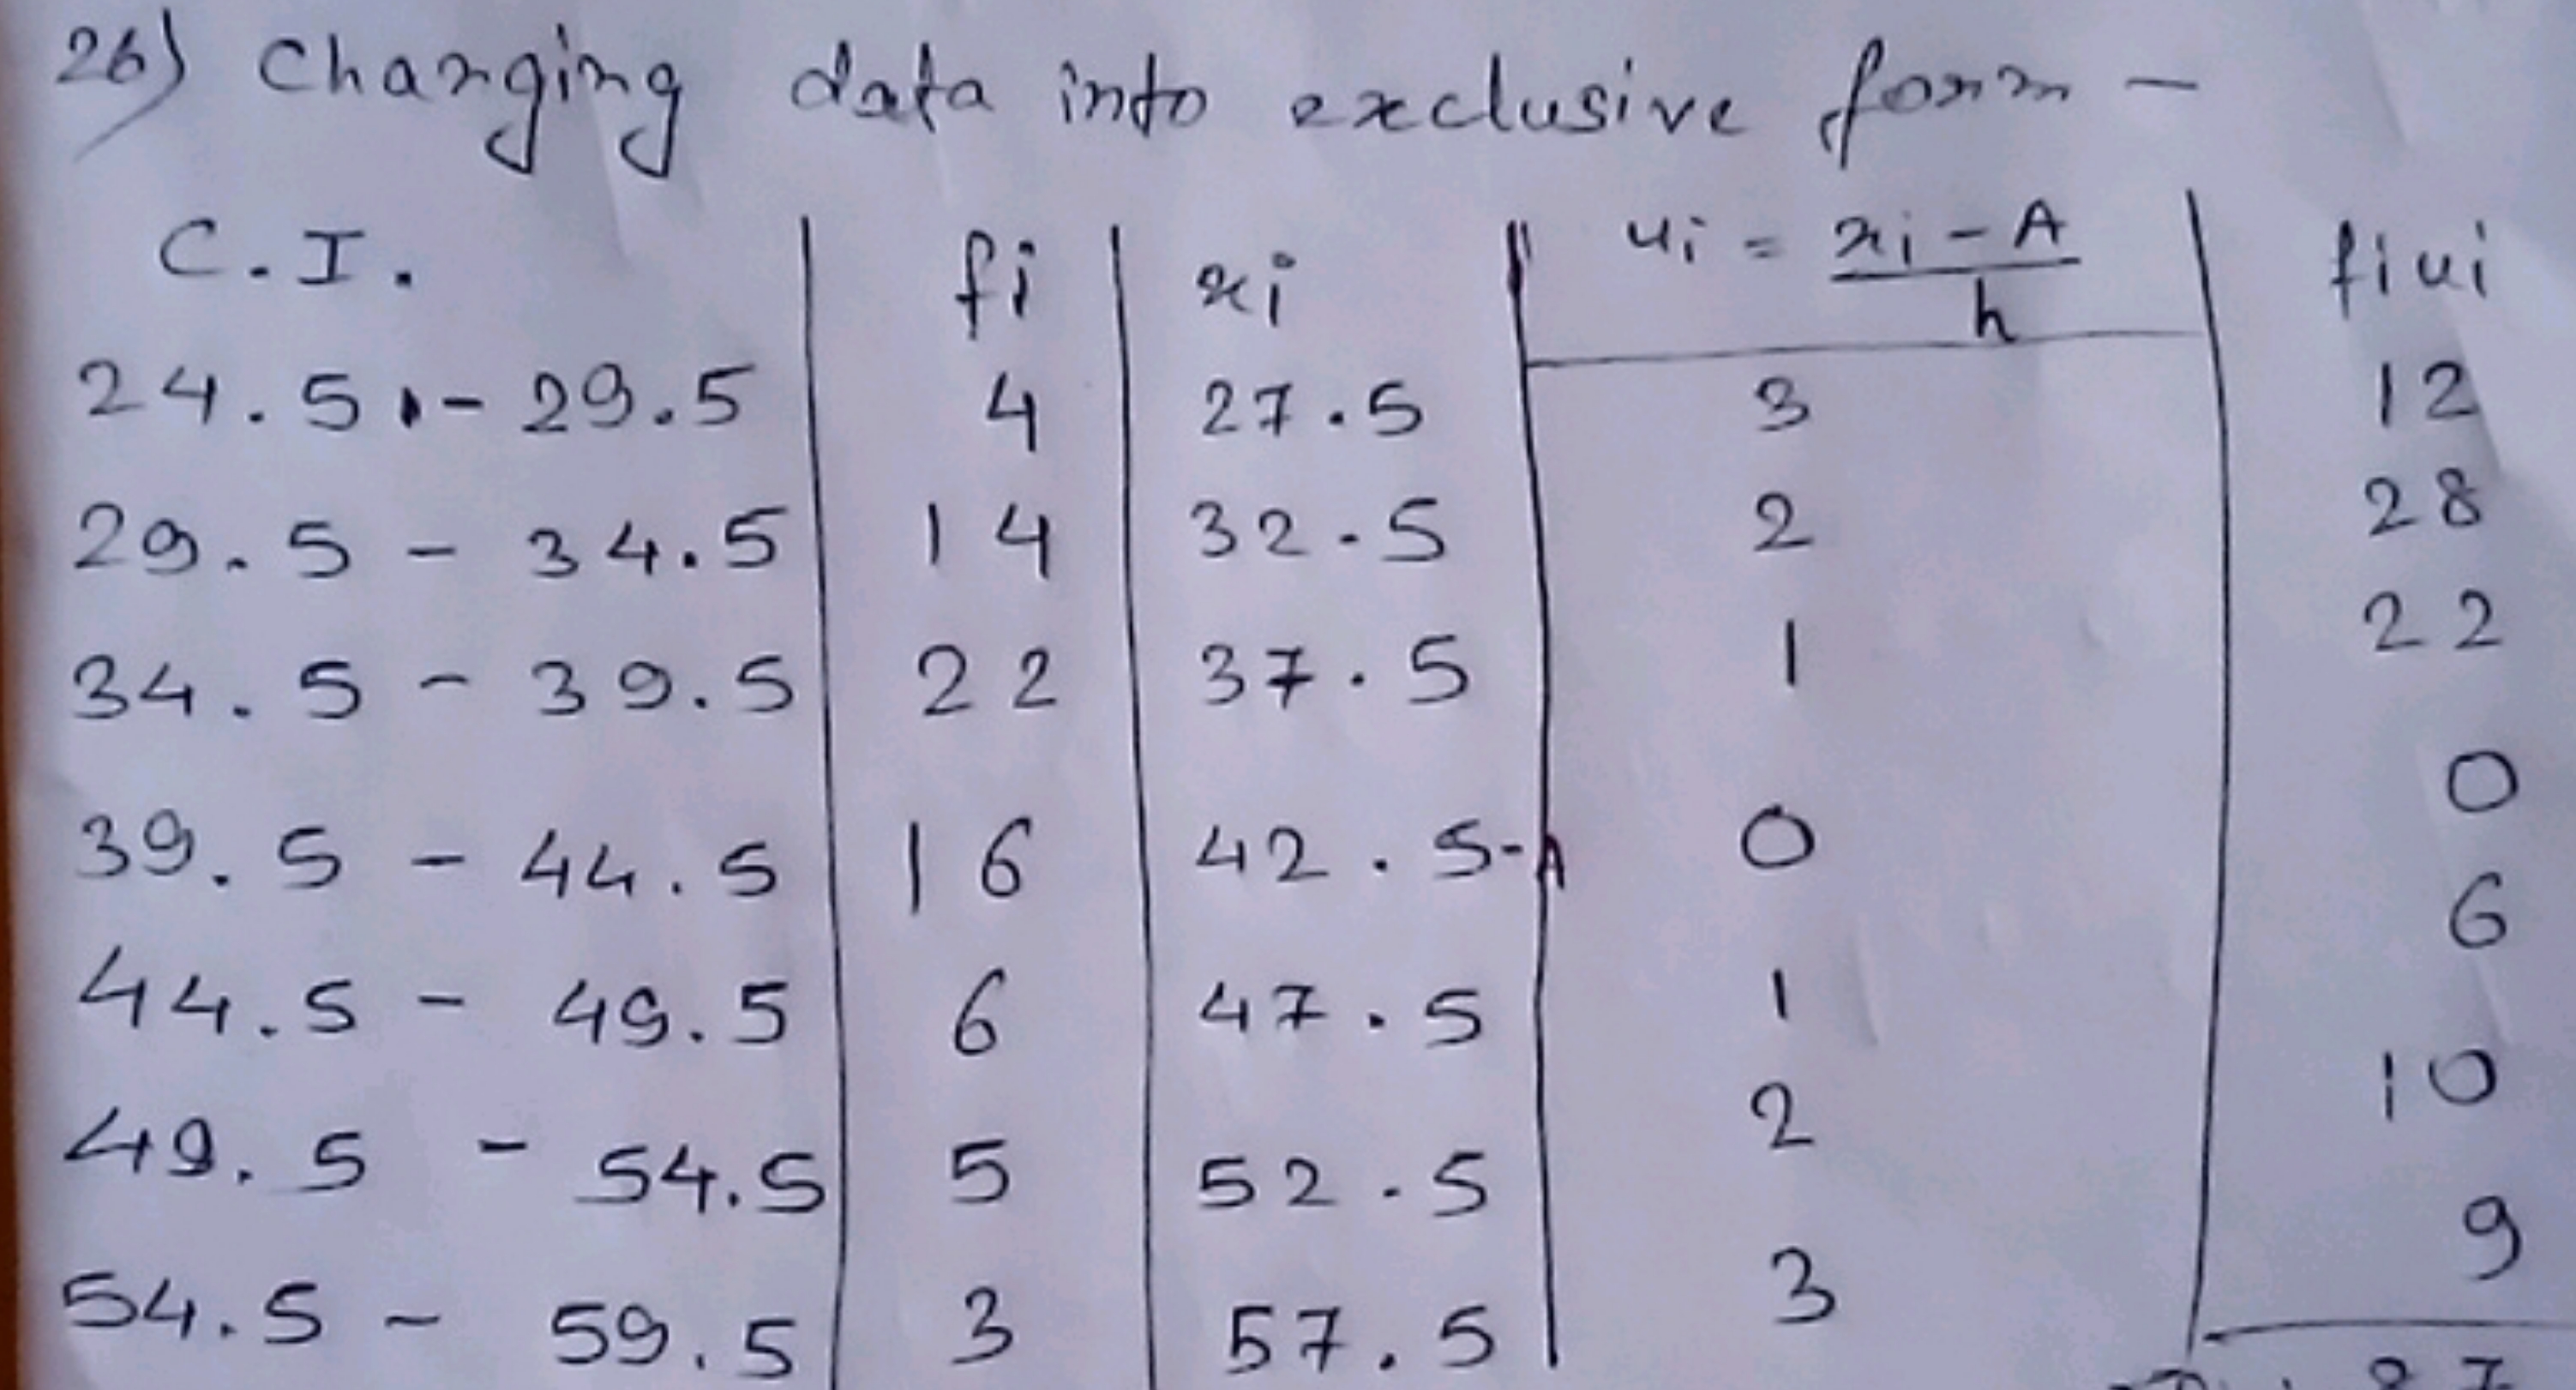 26) Changing data into exclusive form -
C.I. fi xi ui = xi - A / h fiui
24.5 - 29.5 4 27.5 3 12
29.5 - 34.5 14 32.5 2 28
34.5 - 39.5 22 37.5 1 22
39.5 - 44.5 16 42.5-A 0 0
44.5 - 49.5 6 47.5 1 6
49.5 - 54.5 5 52.5 2 10
54.5 - 59.5 3 57.5 3 9
87